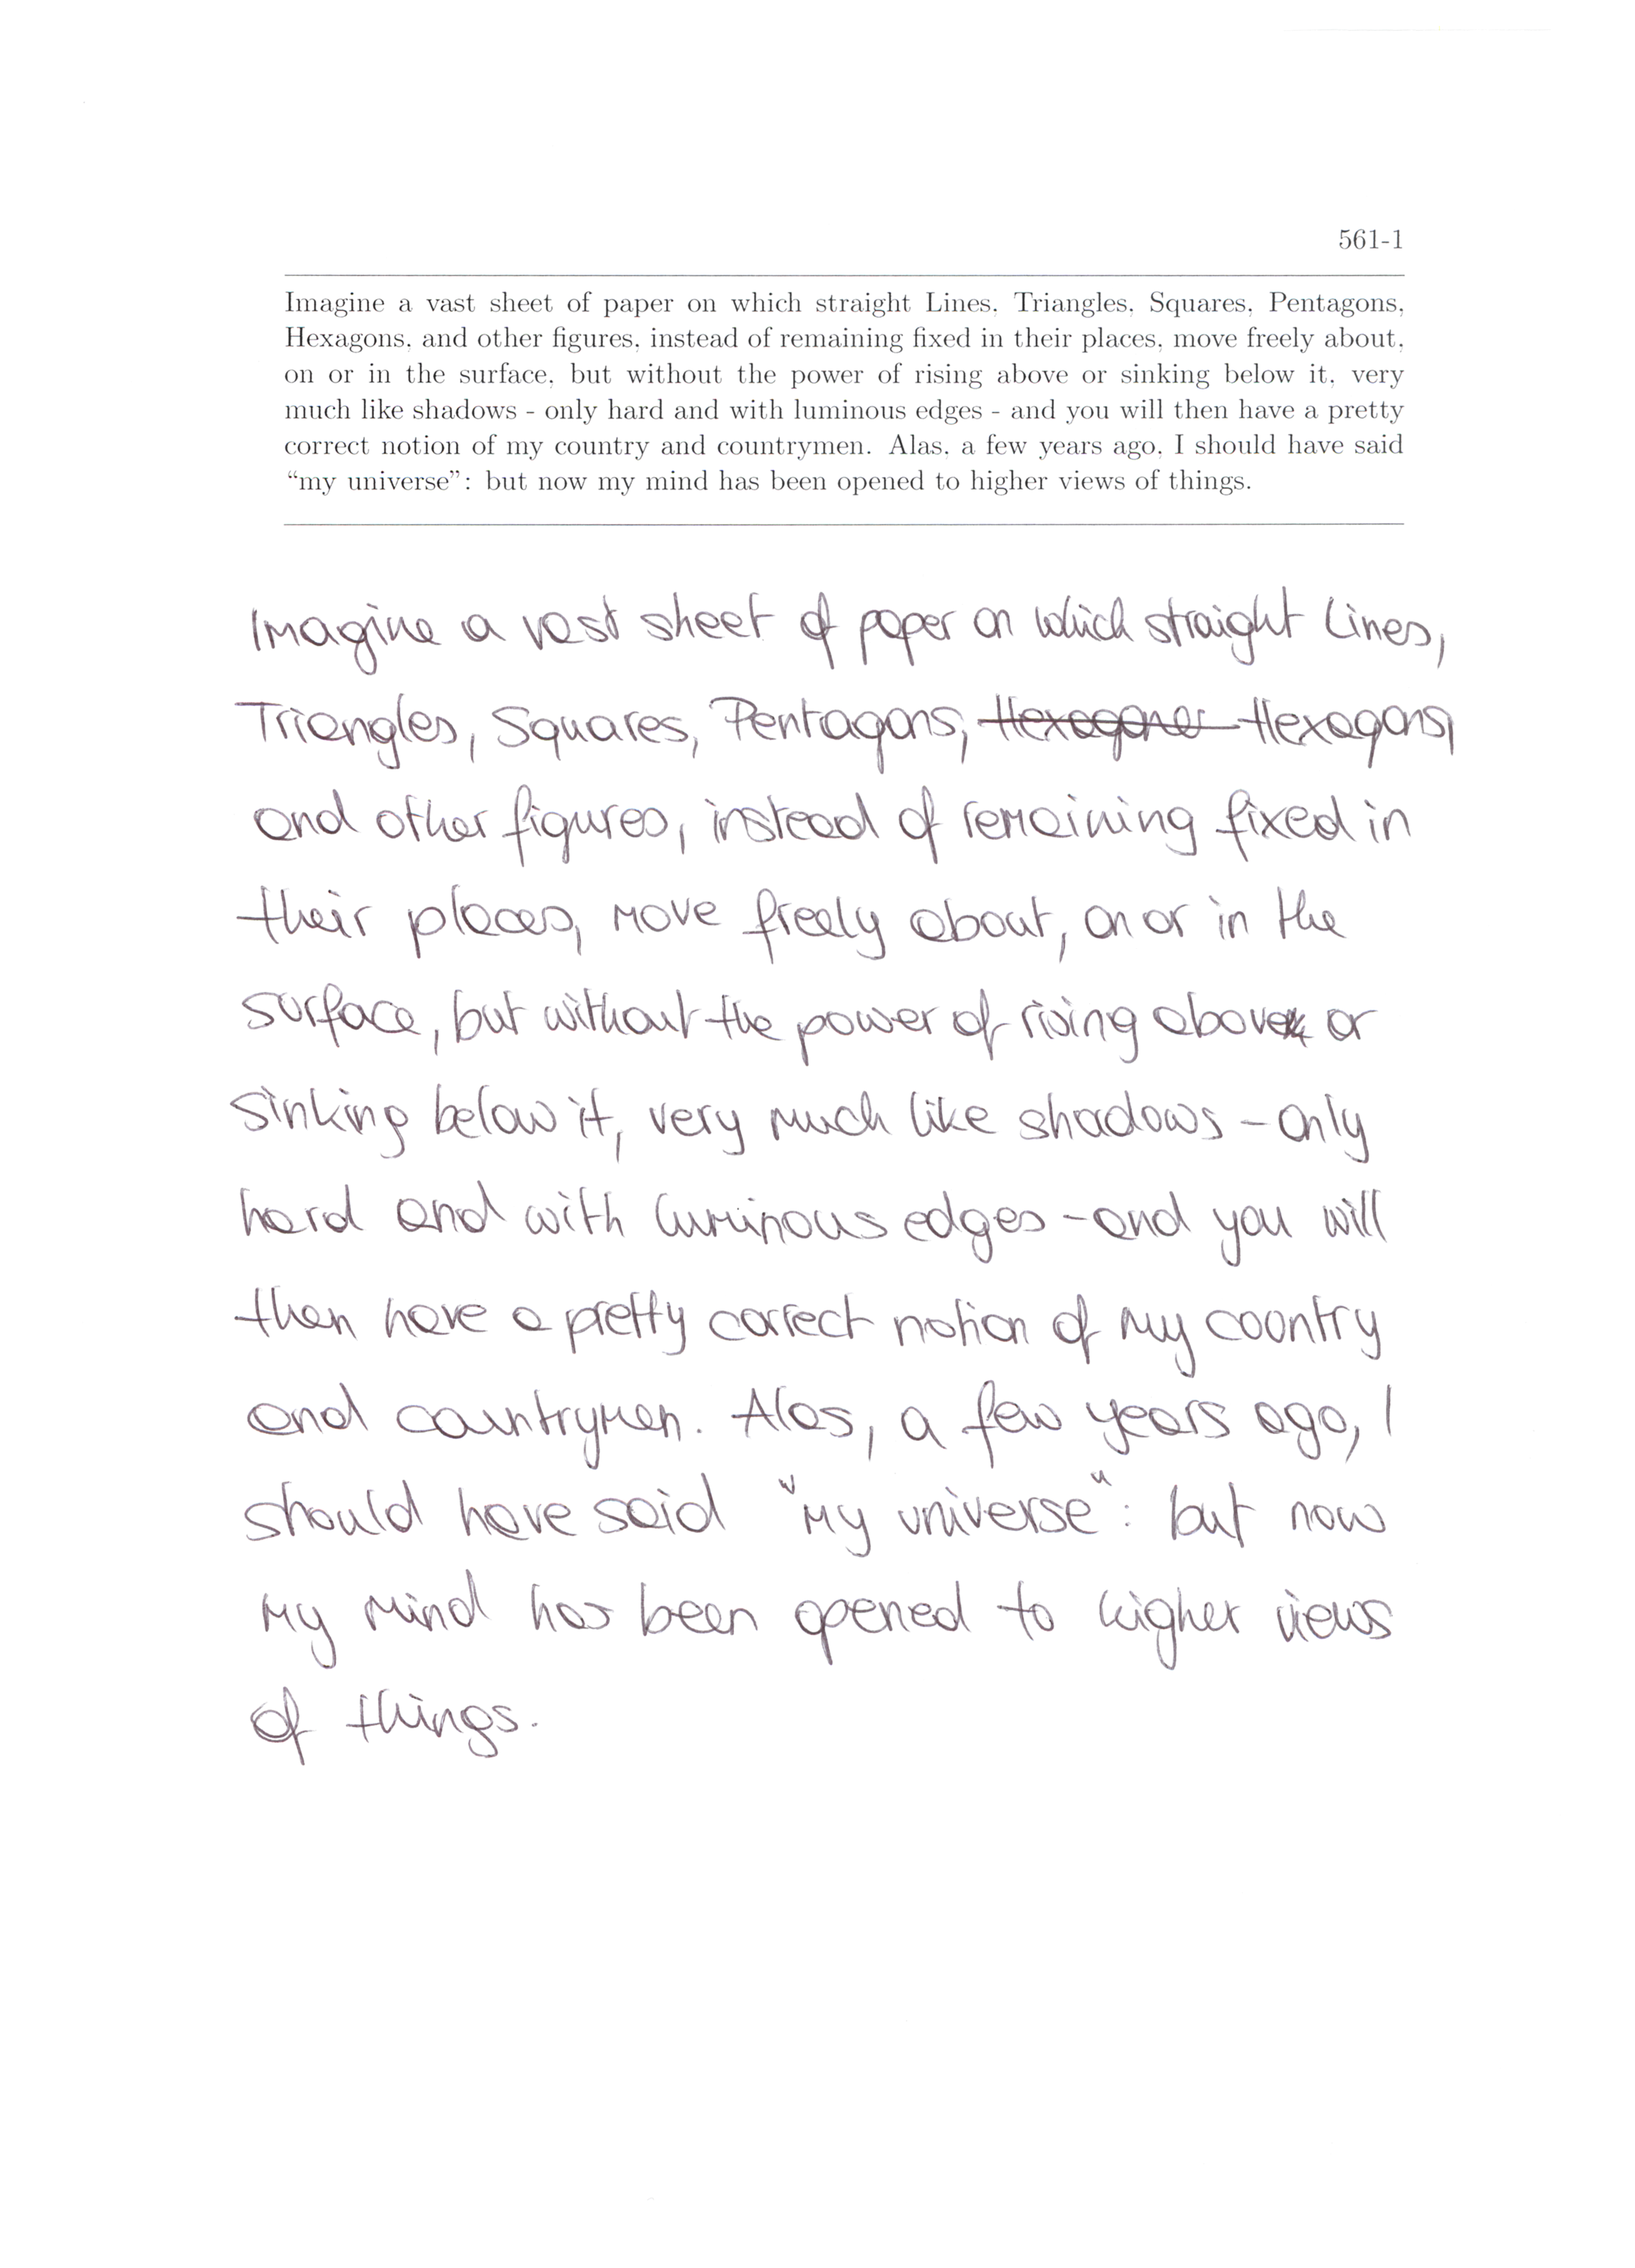 561-1
Imagine a vast sheet of paper on which straight Lines, Triangles, Squares, Pentagons,
Hexagons, and other figures, instead of remaining fixed in their places, move freely about,
on or in the surface, but without the power of rising above or sinking below it, very
much like shadows - only hard and with luminous edges - and you will then have a pretty
correct notion of my country and countrymen. Alas, a few years ago, I should have said
“my universe”: but now my mind has been opened to higher views of things.
Imagine a vast sheet of paper on which straight Lines,
Triangles, Squares, Pentagons, Hexagons,
and other figures, instead of remaining fixed in
their places, move freely about, on or in the
surface, but without the power of rising above or
sinking below it, very much like shadows - only
hard and with luminous edges - and you will
then have a pretty correct notion of my country
and countrymen. Alas, a few years ago, I
should have said "my universe": but now
my mind has been opened to higher views
of things.